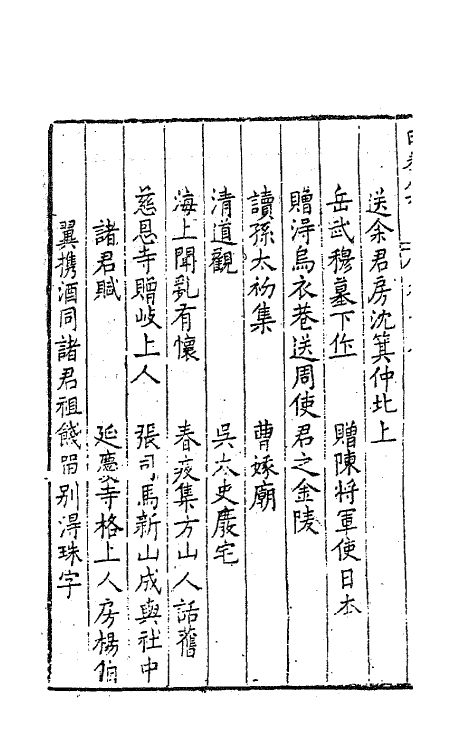 送余君房沈箕仲北上
岳武穆墓下作　贈陳将軍使日本
贈淂烏衣巷送周使君之金陵
讀孫太初集　曹娥廟
清道觀　吳太史廢宅
海上聞亂有懷　春疫集方山人話舊
慈恩寺贈岐上人　張司馬新山成與社中
諸君賦　延慶寺格上人房楊伯
翼携酒同諸君祖餞留别淂珠字